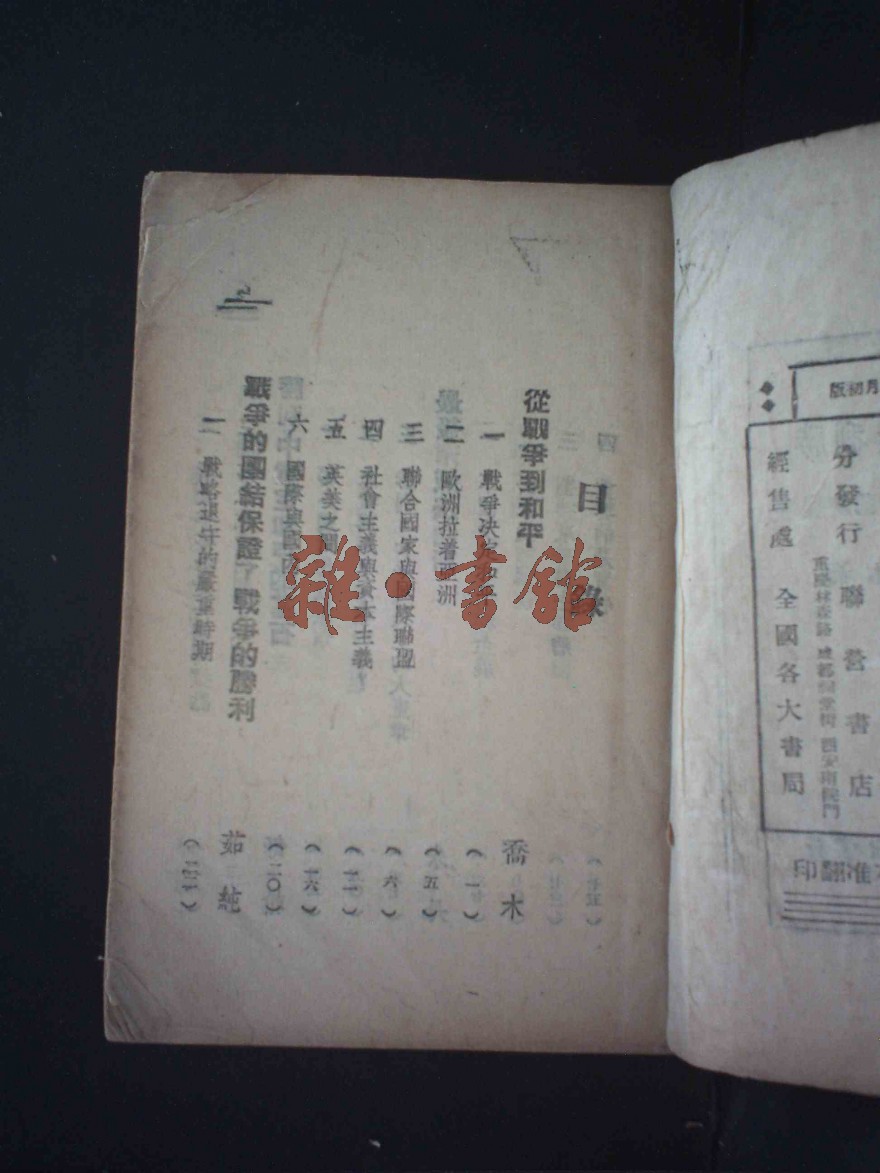 月初版
分發行 聯營書店
重慶林森路 成都祠堂街 西安南院門
經售處 全國各大書局
准翻印
目錄
從戰爭到和平 喬木
一 戰爭決定 (一)
二 歐洲拉着亞洲 (五)
三 聯合國家與國際聯盟 (六)
四 社會主義與資本主義 (十一)
五 英美之間 (十六)
六 國際與國 (二〇)
戰爭的團結保證了戰爭的勝利 茹純
一 戰略退守的嚴重時期
雜·書館